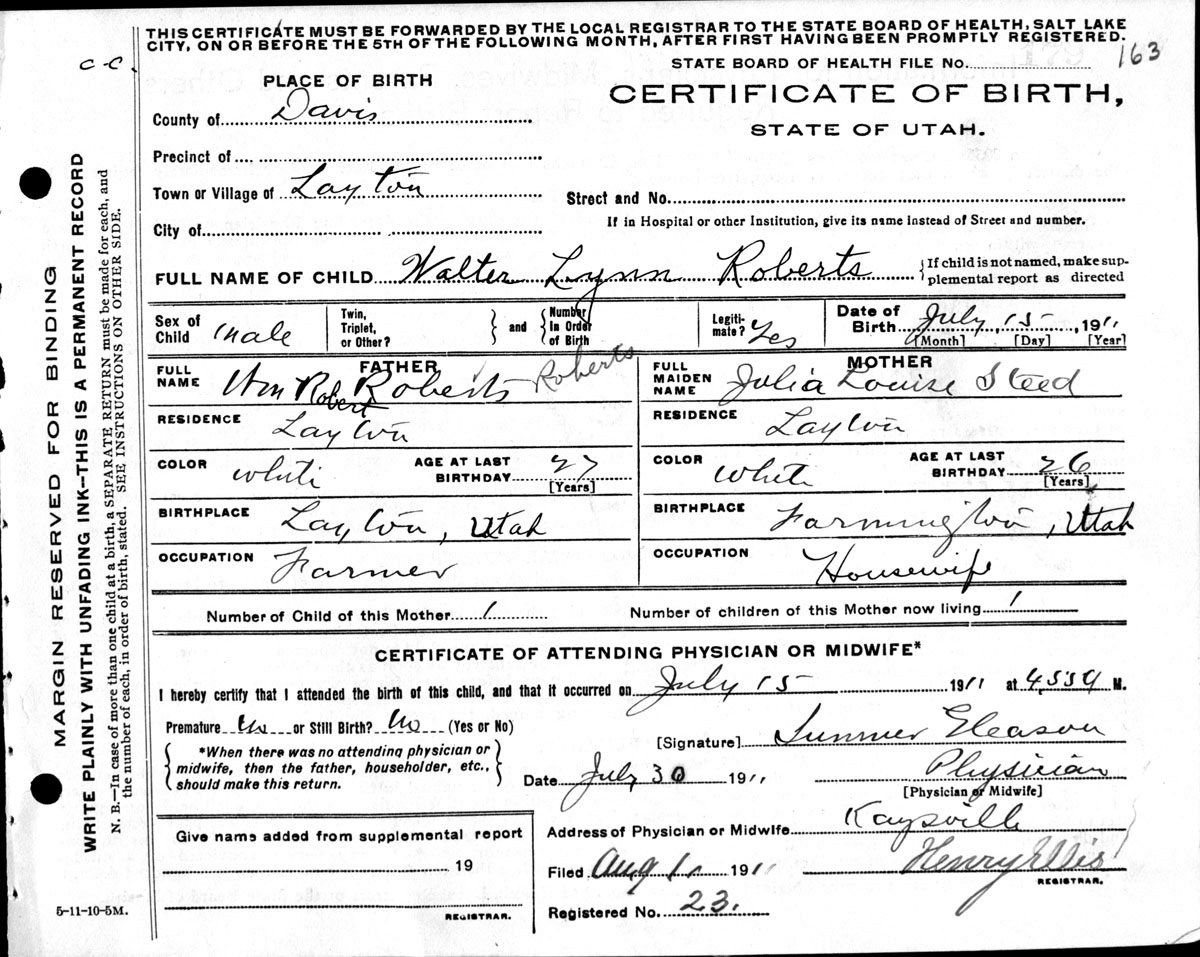 THIS CERTIFICATE MUST BE FORWARDED BY THE LOCAL REGISTRAR TO THE STATE BOARD OF HEALTH, SALT LAKE
CITY, ON OR BEFORE THE 5TH OF THE FOLLOWING MONTH, AFTER FIRST HAVING BEEN PROMPTLY REGISTERED.
C-C.
STATE BOARD OF HEALTH FILE No. 163
PLACE OF BIRTH
CERTIFICATE OF BIRTH,
STATE OF UTAH.
County of Davis
Precinct of
Town or Village of Layton
Street and No.
City of
If in Hospital or other Institution, give its name instead of Street and number.
FULL NAME OF CHILD Walter Lynn Roberts { If child is not named, make sup-
plemental report as directed
Sex of Child male Twin, Triplet, or Other? } and { Number In Order of Birth Legiti-mate? Yes Date of Birth July, 15, 1911
[Month] [Day] [Year]
FATHER
FULL NAME Wm Robert Roberts Roberts
RESIDENCE Layton
COLOR White AGE AT LAST BIRTHDAY 27
[Years]
BIRTHPLACE Layton, Utah
OCCUPATION Farmer
MOTHER
FULL MAIDEN NAME Julia Louise Steed
RESIDENCE Layton
COLOR White AGE AT LAST BIRTHDAY 26
[Years]
BIRTHPLACE Farmington, Utah
OCCUPATION Housewife
Number of Child of this Mother 1 Number of children of this Mother now living 1
CERTIFICATE OF ATTENDING PHYSICIAN OR MIDWIFE*
I hereby certify that I attended the birth of this child, and that it occurred on July 15 1911 at 4.55 a M.
Premature No or Still Birth? No (Yes or No)
{ *When there was no attending physician or
midwife, then the father, householder, etc.,
should make this return. }
[Signature] Sumner Gleason
Date July 30 1911 Physician
[Physician or Midwife]
Give name added from supplemental report
19
REGISTRAR.
Address of Physician or Midwife Kaysville
Filed Aug 1, 1911 Henry Ellis
REGISTRAR.
Registered No. 23.
5-11-10-5M.
MARGIN RESERVED FOR BINDING
WRITE PLAINLY WITH UNFADING INK—THIS IS A PERMANENT RECORD
N. B.—In case of more than one child at a birth, a SEPARATE RETURN must be made for each, and
the number of each, in order of birth, stated. SEE INSTRUCTIONS ON OTHER SIDE.